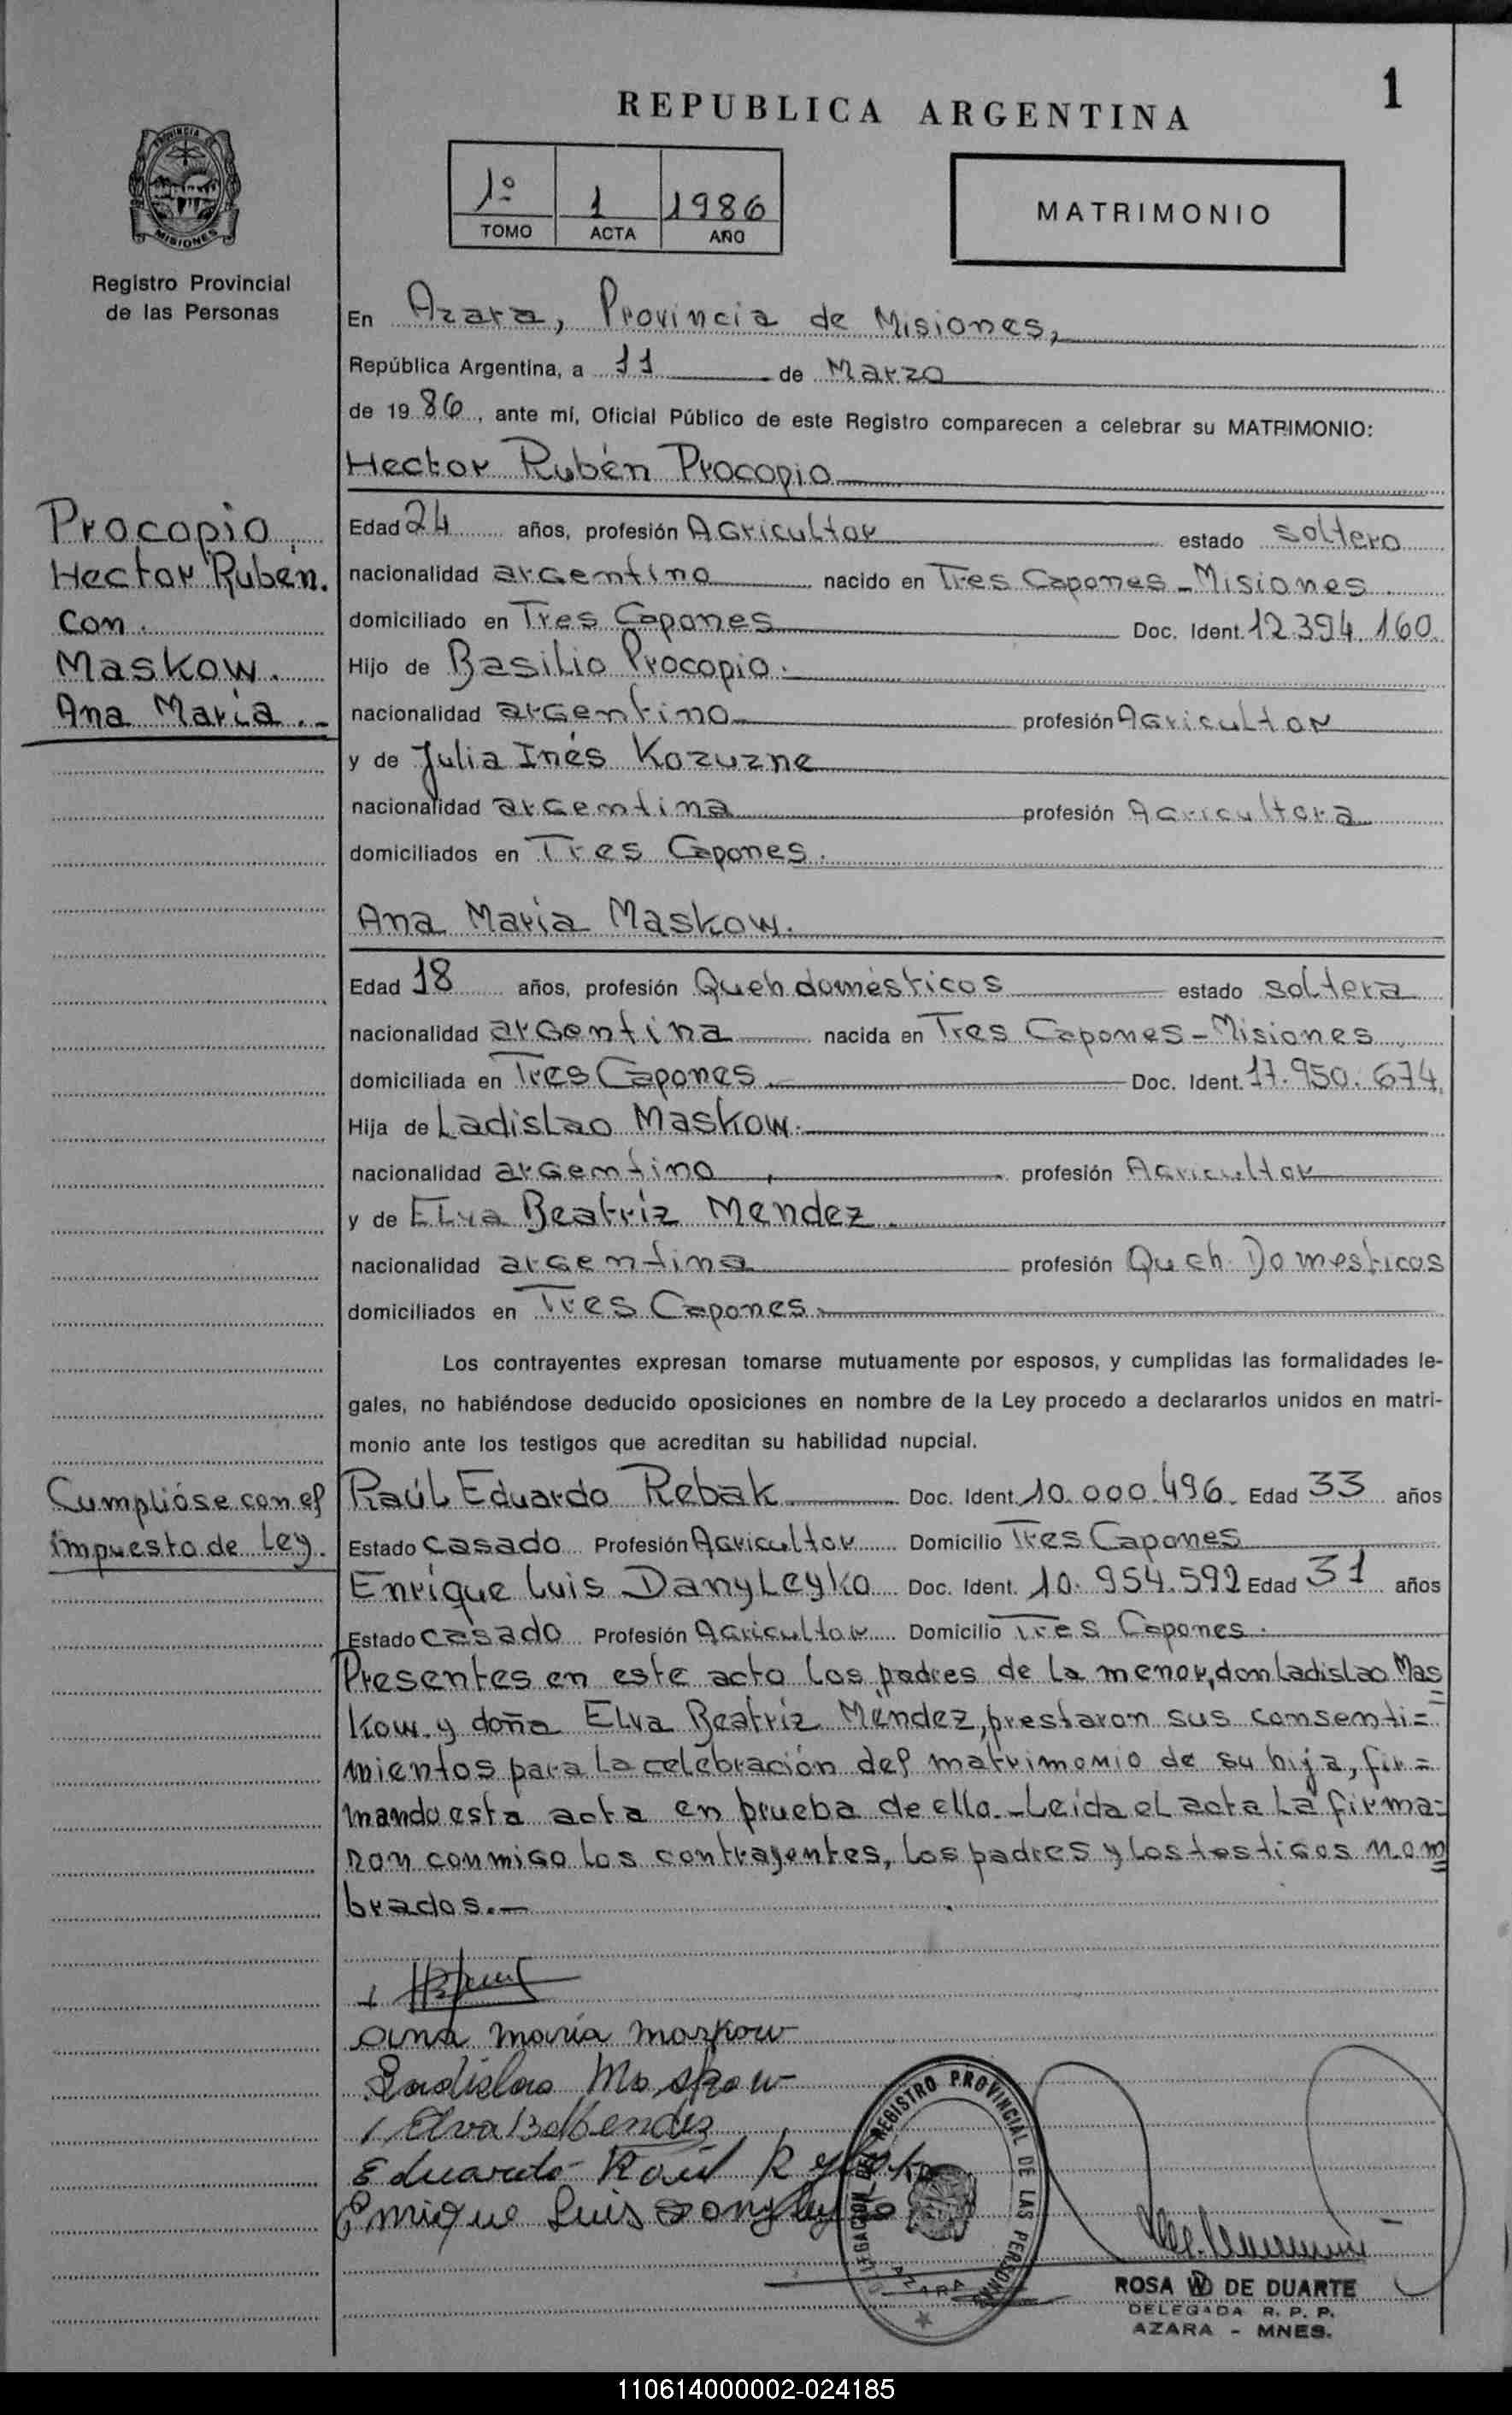 1
REPUBLICA ARGENTINA
PROVINCIA
MISIONES
Registro Provincial
de las Personas
1º 1 1986
TOMO ACTA AÑO
MATRIMONIO
En Azara, Provincia de Misiones,
República Argentina, a 11 de Marzo
de 19 86, ante mí, Oficial Público de este Registro comparecen a celebrar su MATRIMONIO:
Hector Rubén Procopio
Procopio
Hector Rubén.
con.
Maskow.
Ana María..-
Edad 24 años, profesión Agricultor estado soltero
nacionalidad argentino nacido en Tres Capones-Misiones
domiciliado en Tres Capones Doc. Ident. 12.394.160.
Hijo de Basilio Procopio.
nacionalidad argentino profesión Agricultor
y de Julia Inés Kozuzne
nacionalidad argentina profesión Agricultora
domiciliados en Tres Capones.
Ana Maria Maskow.
Edad 18 años, profesión Queh domésticos estado soltera
nacionalidad argentina nacida en Tres Capones-Misiones
domiciliada en Tres Capones Doc. Ident. 17.950.674.
Hija de Ladislao Maskow.
nacionalidad argentino, profesión Agricultor
y de Elva Beatríz Mendez.
nacionalidad argentina profesión Queh. Domesticos
domiciliados en Tres Capones.
Los contrayentes expresan tomarse mutuamente por esposos, y cumplidas las formalidades le-
gales, no habiéndose deducido oposiciones en nombre de la Ley procedo a declararlos unidos en matri-
monio ante los testigos que acreditan su habilidad nupcial.
Cumplióse con el
impuesto de Ley.
Raúl Eduardo Rebak. Doc. Ident. 10.000.496. Edad 33 años
Estado casado Profesión Agricultor Domicilio Tres Capones
Enrique Luis Danyleyko Doc. Ident. 10.954.592 Edad 31 años
Estado casado Profesión Agricultor Domicilio Tres Capones.
Presentes en este acto los padres de la menor, don Ladislao Mas
kow y doña Elva Beatríz Méndez, prestaron sus consenti=
mientos para la celebración del matrimonio de su hija, fir=
mando esta acta en prueba de ello.-Leída el acta la firma=
ron conmigo los contrayentes, los padres y los testigos nom
brados.-
ana maría maskow
Ladislao Maskow
Elva B. Mendez
Eduardo Raúl
Enrique Luis
DELEGACION DEL REGISTRO PROVINCIAL DE LAS PERSONAS
AZARA
ROSA W DE DUARTE
DELEGADA R. P. P.
AZARA - MNES.
110614000002-024185